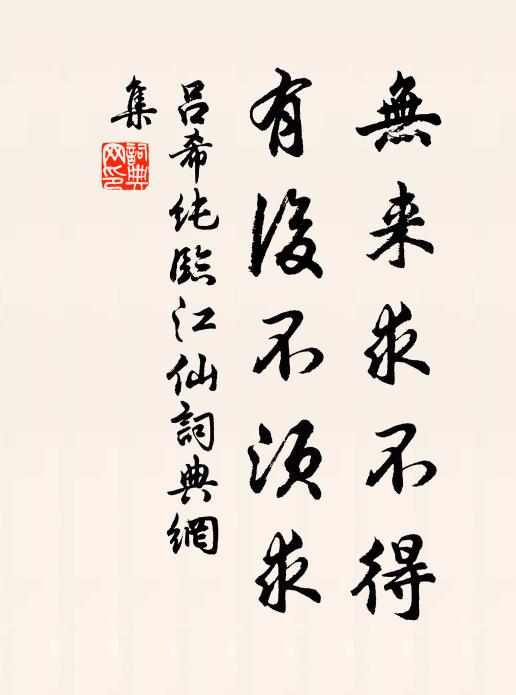 無来求不得
有後不須求
呂希純臨江仙詞典網
集
詞典網印